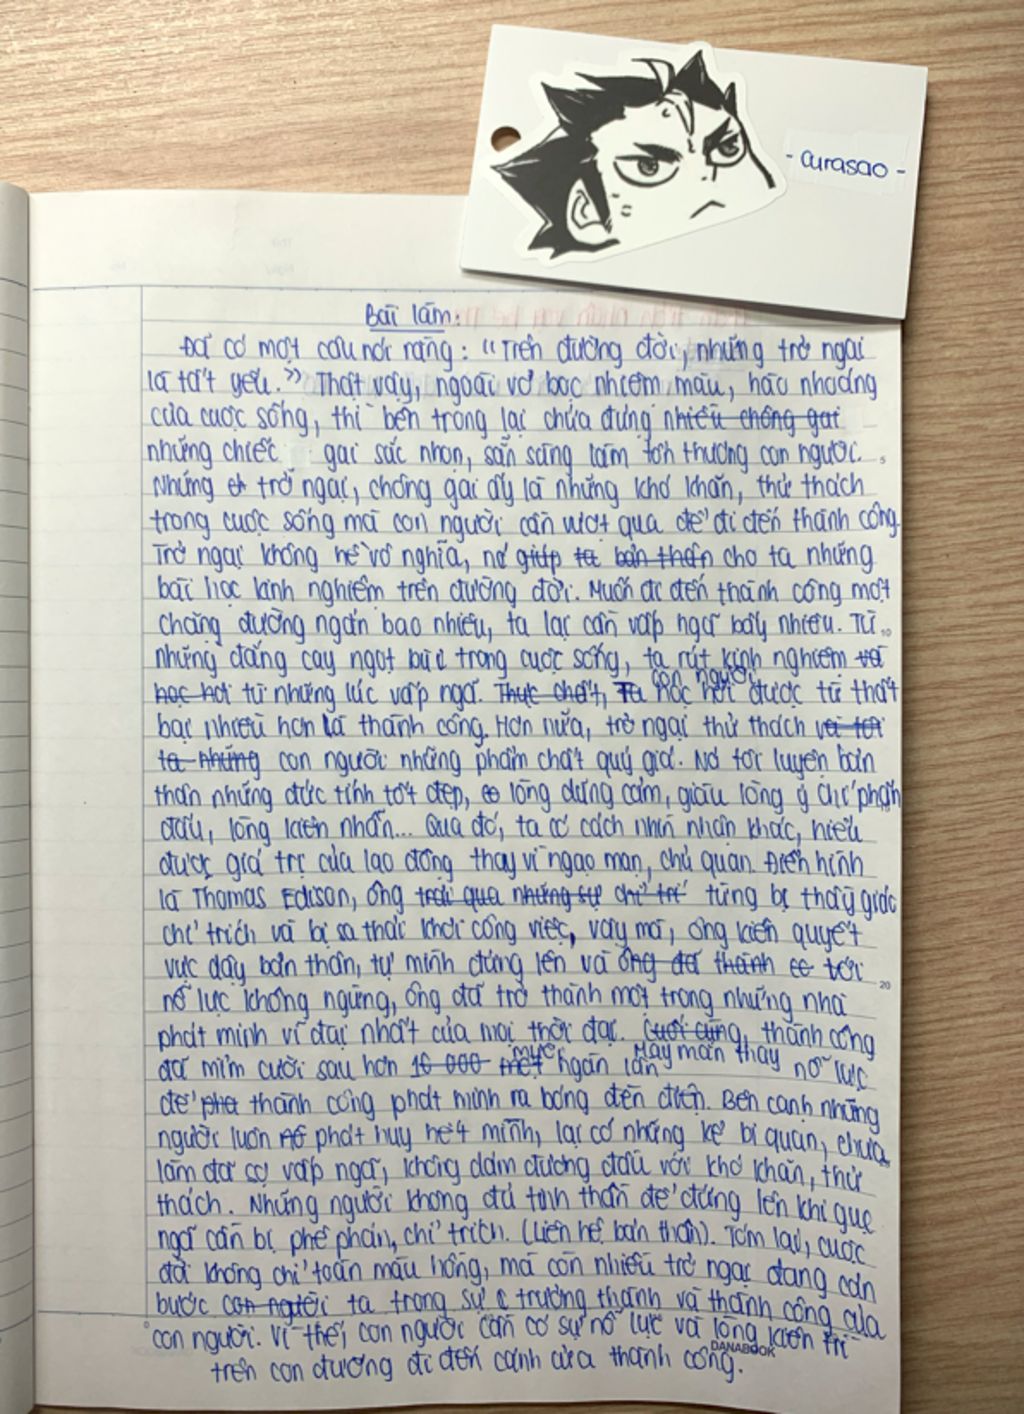 - Curasao -
Bài làm:
Đã có một câu nói rằng: “Trên đường đời, những trở ngại
là tất yếu.” Thật vậy, ngoài vỏ bọc nhiệm màu, hào nhoáng
của cuộc sống, thì bên trong lại chứa đựng nhiều chông gai
những chiếc gai sắc nhọn, sẵn sàng làm tổn thương con người.
Những trở ngại, chông gai ấy là những khó khăn, thử thách
trong cuộc sống mà con người cần vượt qua để đi đến thành công.
Trở ngại không hề vô nghĩa, nó giúp ta bản thân cho ta những
bài học kinh nghiệm trên đường đời. Muốn đi đến thành công một
chặng đường ngắn bao nhiêu, ta lại cần vấp ngã bấy nhiêu. Từ
những đắng cay ngọt bùi trong cuộc sống, ta rút kinh nghiệm và
học hỏi từ những lúc vấp ngã. Thực chất, Ta con người học hỏi được từ thất
bại nhiều hơn là thành công. Hơn nữa, trở ngại thử thách và tôi
ta những con người những phẩm chất quý giá. Nó tôi luyện bản
thân những đức tính tốt đẹp, lòng dũng cảm, giàu lòng ý chí phấn
đấu, lòng kiên nhẫn... Qua đó, ta có cách nhìn nhận khác, hiểu
được giá trị của lao động thay vì ngạo mạn, chủ quan. Điển hình
là Thomas Edison, ông trải qua những sự chỉ trí từng bị thầy giáo
chỉ trích và bị sa thải khỏi công việc, vậy mà, ông kiên quyết
vực dậy bản thân, tự mình đứng lên và ông đã thành tới
nỗ lực không ngừng, ông đã trở thành một trong những nhà
phát minh vĩ đại nhất của mọi thời đại. Cuối cùng, thành công
đã mỉm cười sau hơn 10 000 một mười ngàn lần May mắn thay nỗ lực
để thành công phát minh ra bóng đèn điện. Bên cạnh những
người luôn phát huy hết mình, lại có những kẻ bi quan, chưa
làm đã sợ vấp ngã, không dám đương đầu với khó khăn, thử
thách. Những người không đủ tinh thần để đứng lên khi gục
ngã cần bị phê phán, chỉ trích. (Liên hệ bản thân). Tóm lại, cuộc
đời không chỉ toàn màu hồng, mà còn nhiều trở ngại đang cản
bước con người ta trong sự trưởng thành và thành công của
con người. Vì thế, con người cần có sự nỗ lực và lòng kiên trì
DANABOOK
trên con đường đi đến cánh cửa thành công.
5
10
20